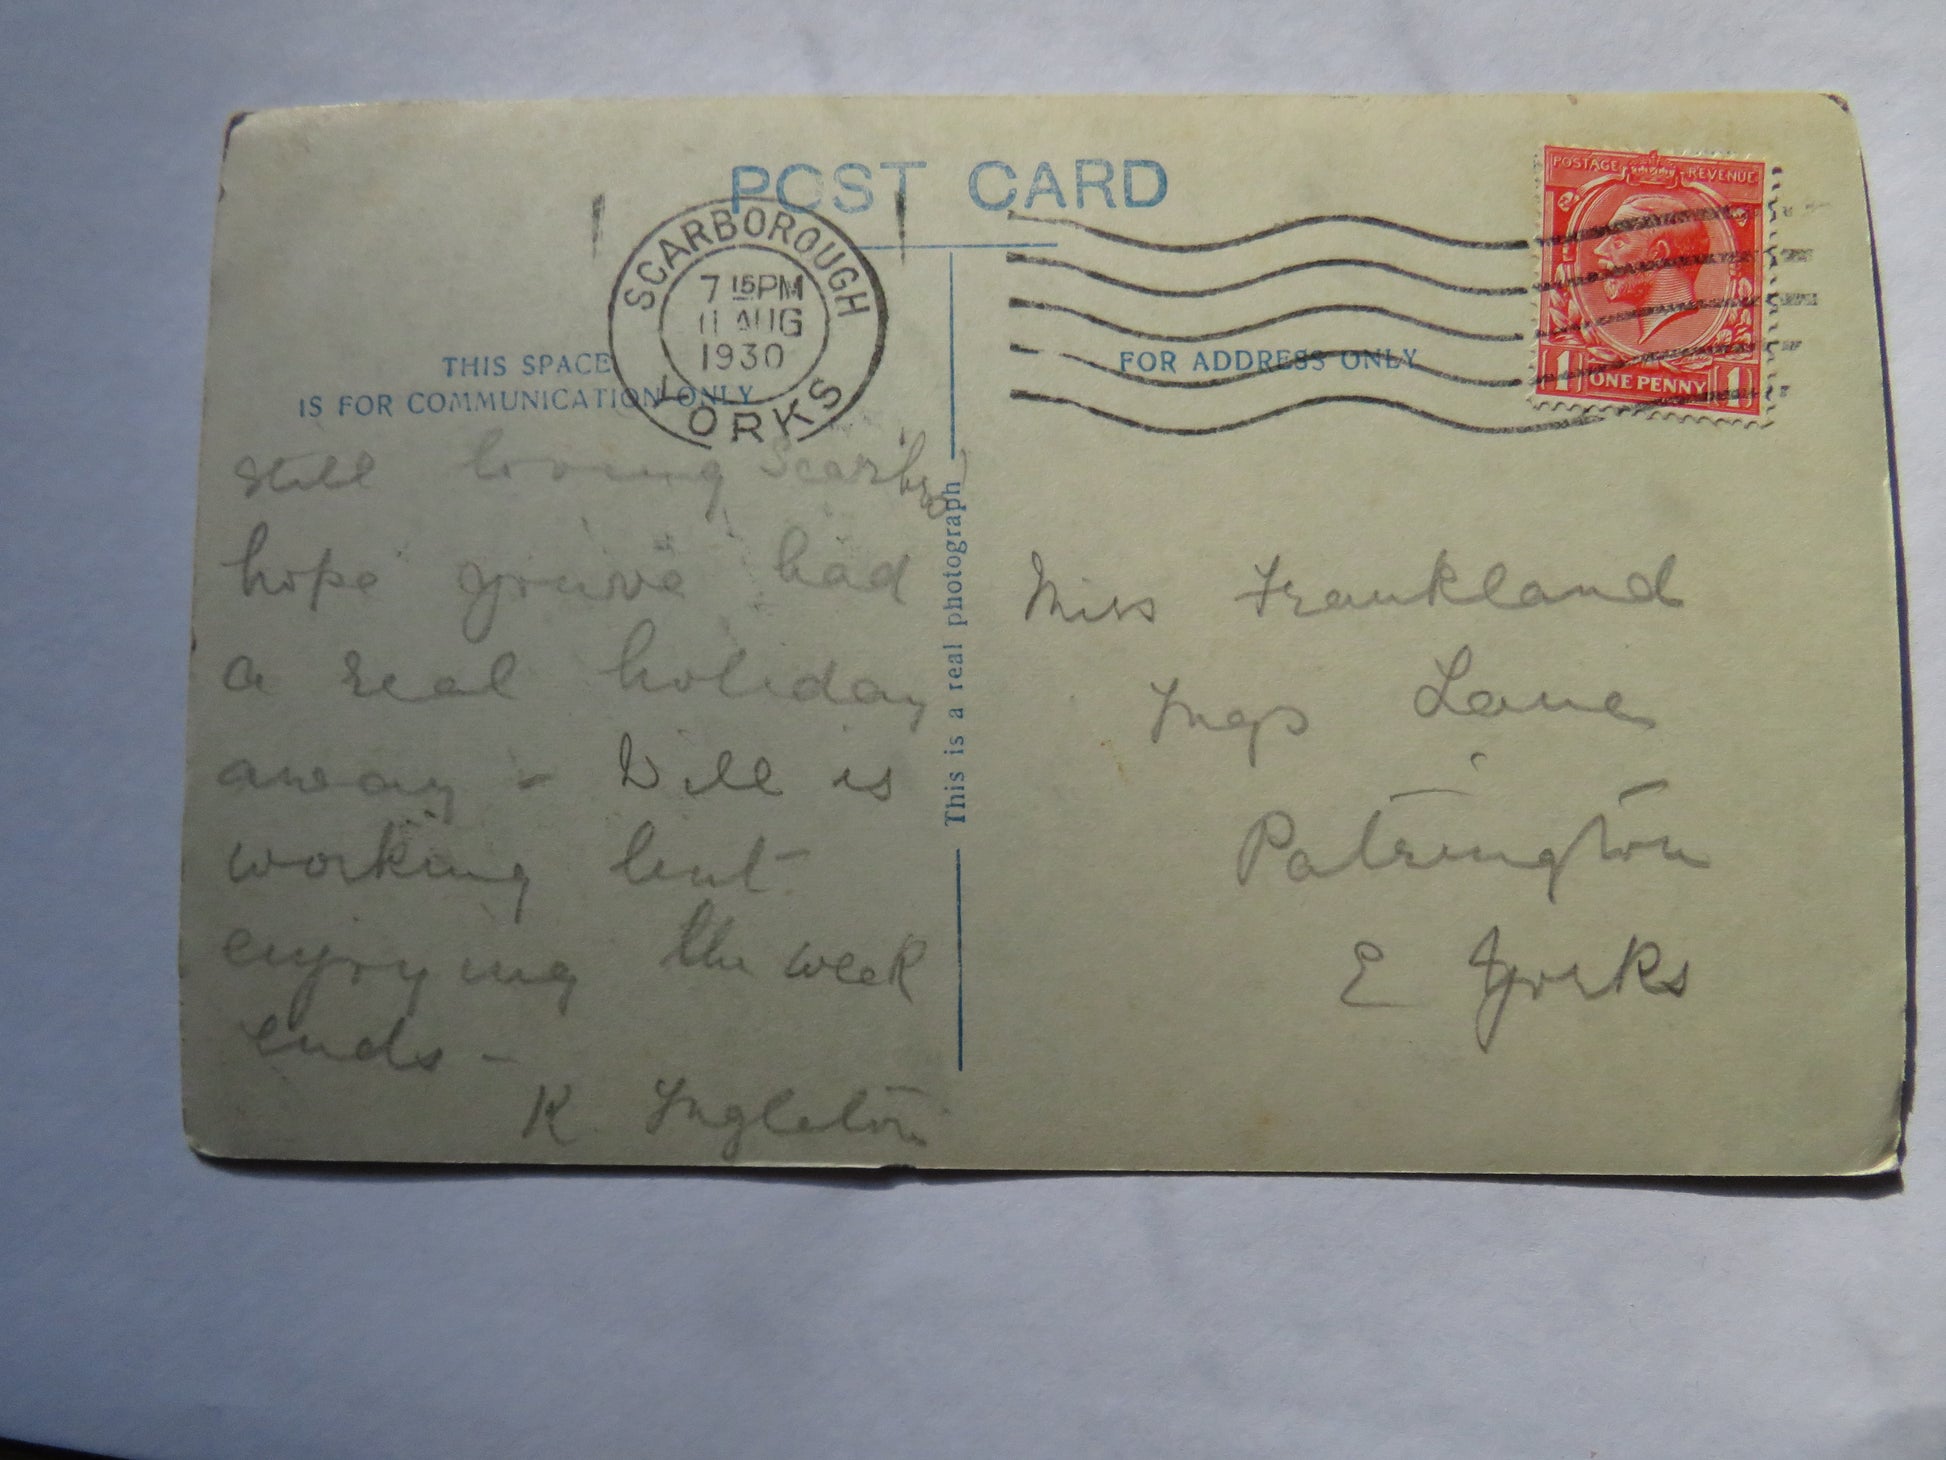 POST CARD
SCARBOROUGH
7 15 PM
11 AUG
1930
YORKS
POSTAGE REVENUE
1 ONE PENNY 1
THIS SPACE
IS FOR COMMUNICATION ONLY
FOR ADDRESS ONLY
Still loving Scarbro
hope youve had
a real holiday
away - Will is
working but
enjoying the week
ends -
K. Ingleton
This is a real photograph
Miss Frankland
Ings Lane
Patrington
E Yorks